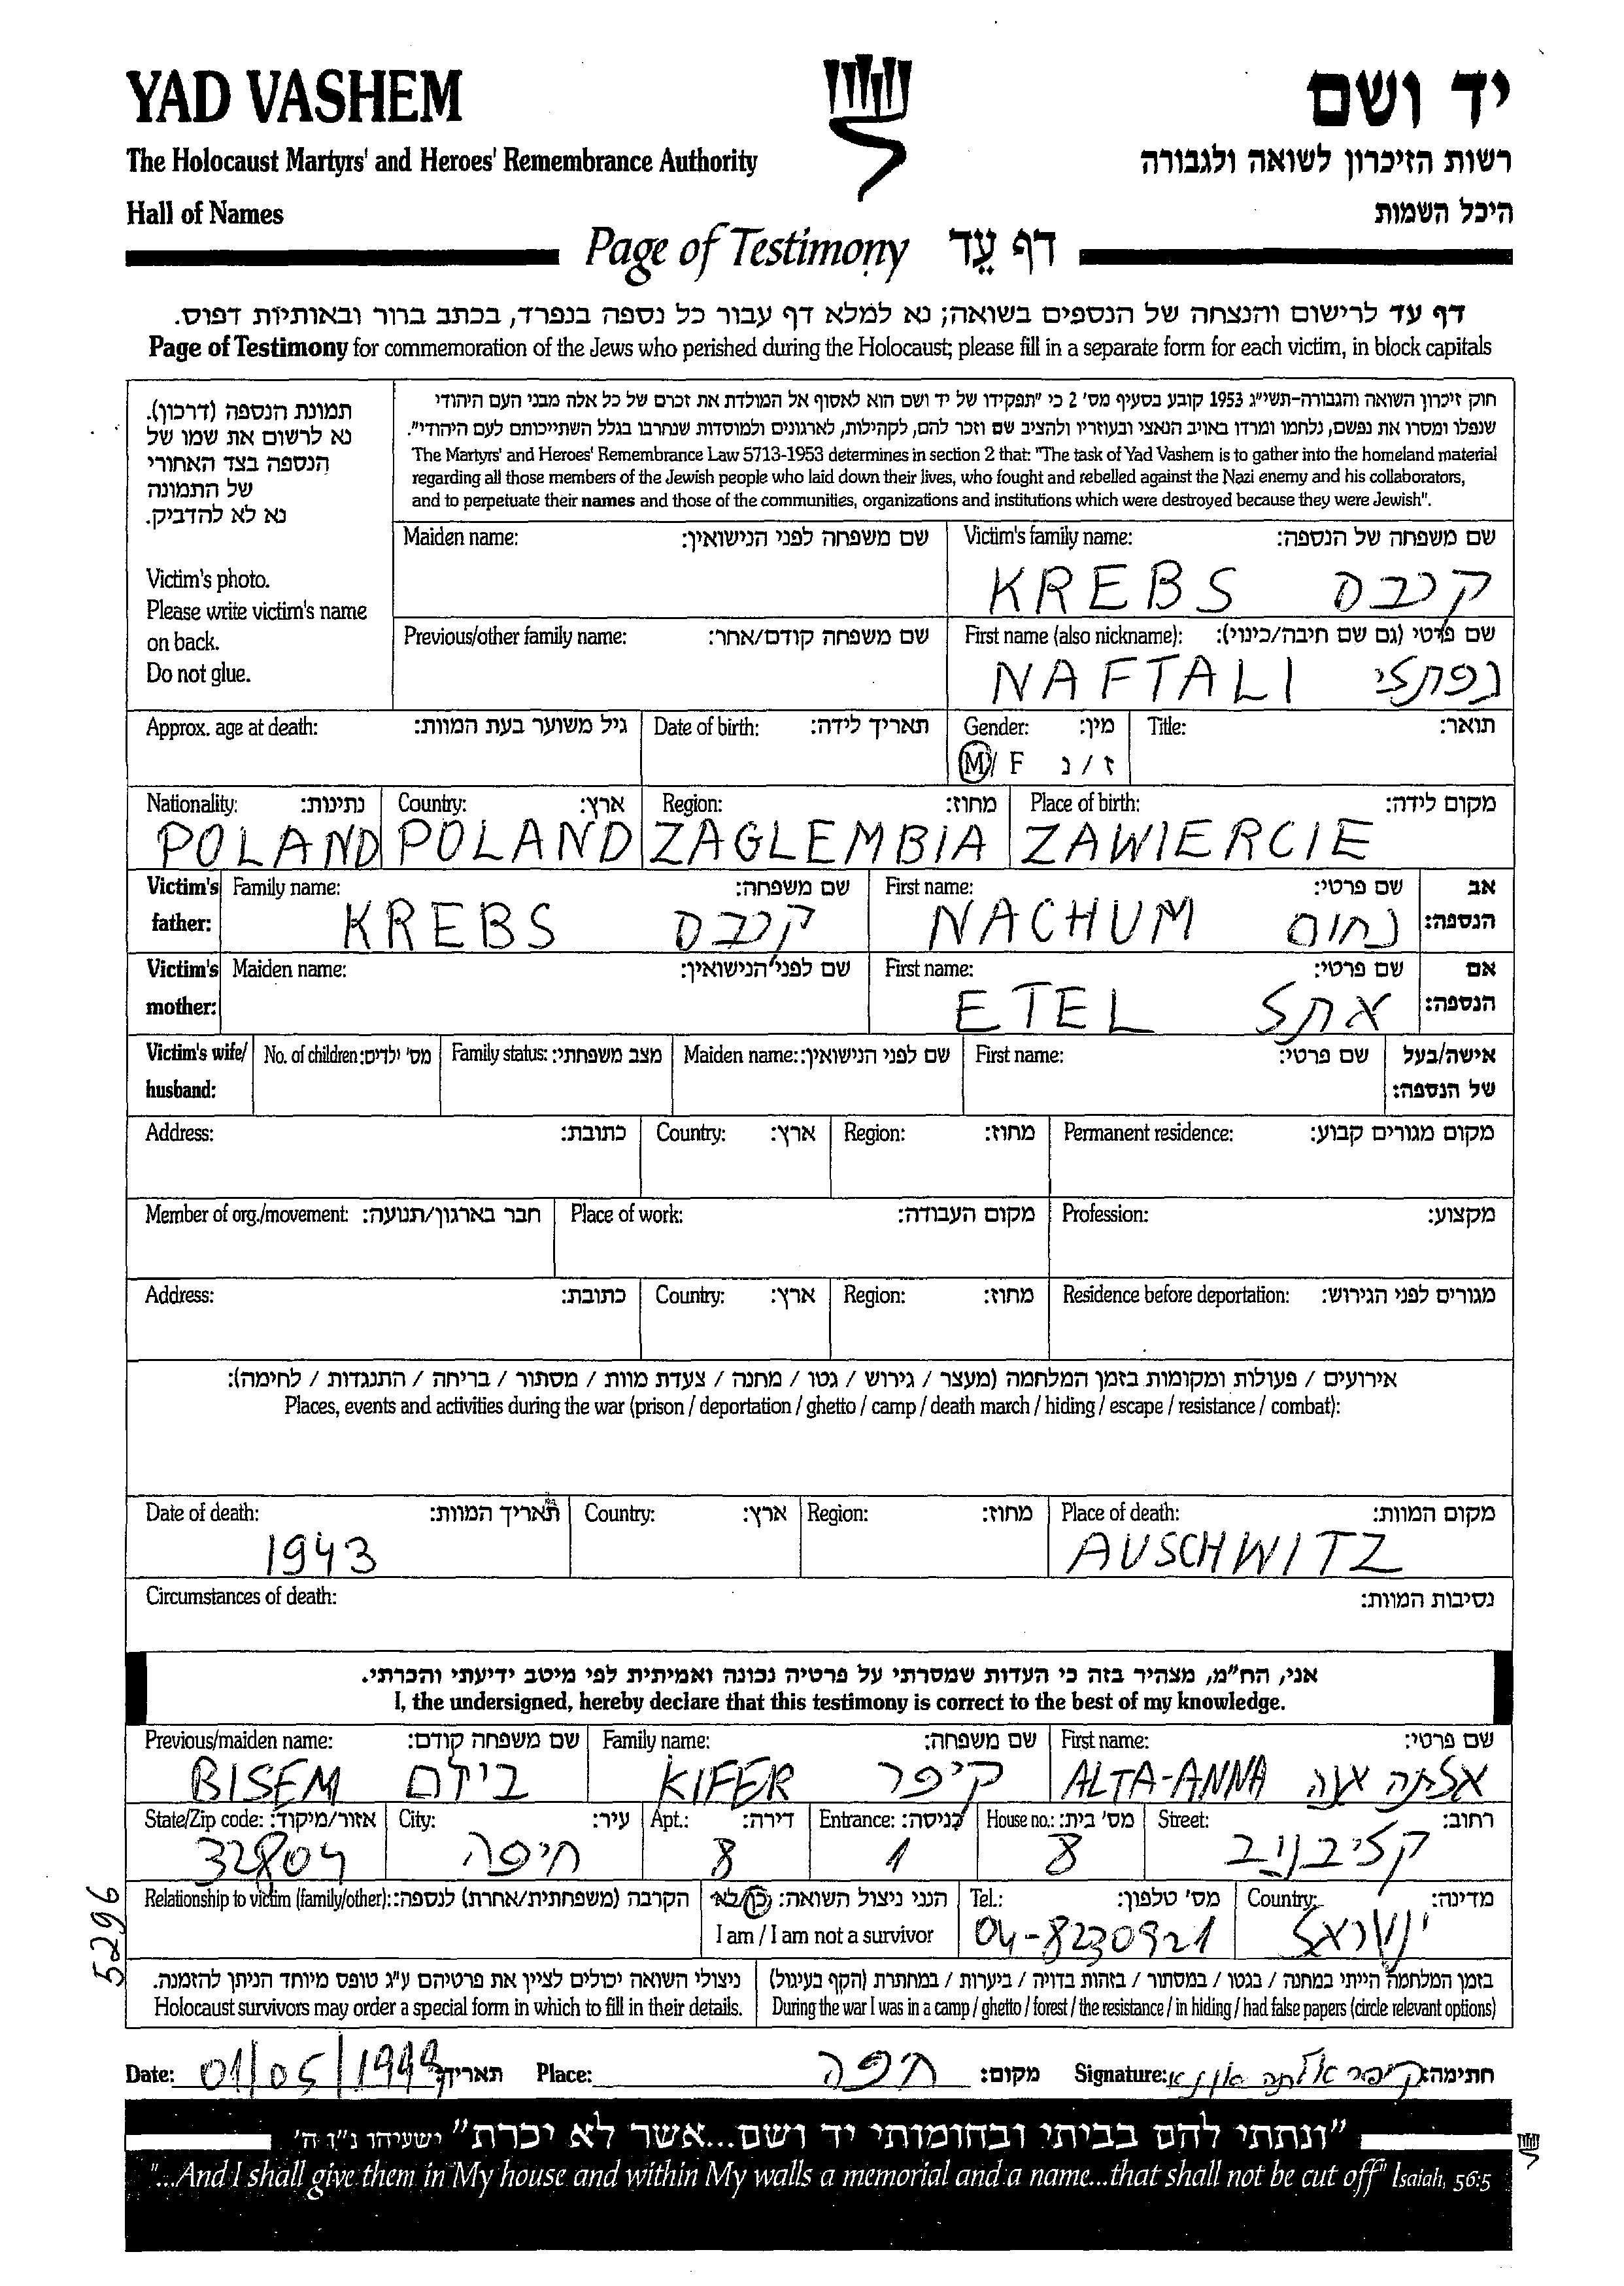 YAD VASHEM
יד ושם
The Holocaust Martyrs' and Heroes' Remembrance Authority
רשות הזיכרון לשואה ולגבורה
Hall of Names
היכל השמות
Page of Testimony דף עֵד
דף עד לרישום והנצחה של הנספים בשואה; נא למלא דף עבור כל נספה בנפרד, בכתב ברור ובאותיות דפוס.
Page of Testimony for commemoration of the Jews who perished during the Holocaust; please fill in a separate form for each victim, in block capitals
תמונת הנספה (דרכון).
נא לרשום את שמו של
הנספה בצד האחורי
של התמונה
נא לא להדביק.
Victim's photo.
Please write victim's name
on back.
Do not glue.
חוק זיכרון השואה והגבורה-תשי"ג 1953 קובע בסעיף מס' 2 כי "תפקידו של יד ושם הוא לאסוף אל המולדת את זכרם של כל אלה מבני העם היהודי
שנפלו ומסרו את נפשם, נלחמו ומרדו באויב הנאצי ובעוזריו ולהציב שם וזכר להם, לקהילות, לארגונים ולמוסדות שנחרבו בגלל השתייכותם לעם היהודי".
The Martyrs' and Heroes' Remembrance Law 5713-1953 determines in section 2 that: "The task of Yad Vashem is to gather into the homeland material
regarding all those members of the Jewish people who laid down their lives, who fought and rebelled against the Nazi enemy and his collaborators,
and to perpetuate their names and those of the communities, organizations and institutions which were destroyed because they were Jewish".
Maiden name: שם משפחה לפני הנישואין:
Victim's family name: שם משפחה של הנספה:
KREBS קרבס
Previous/other family name: שם משפחה קודם/אחר:
First name (also nickname): שם פרטי (גם שם חיבה/כינוי):
NAFTALI נפתלי
Approx. age at death: גיל משוער בעת המוות:
Date of birth: תאריך לידה:
Gender: מין:
M / F ז / נ
Title: תואר:
Nationality: נתינות:
POLAND
Country: ארץ:
POLAND
Region: מחוז:
ZAGLEMBIA
Place of birth: מקום לידה:
ZAWIERCIE
Victim's father:
Family name: שם משפחה:
KREBS קרבס
First name: שם פרטי:
NACHUM נחום
אב הנספה:
Victim's mother:
Maiden name: שם לפני הנישואין:
First name: שם פרטי:
ETEL אתל
אם הנספה:
Victim's wife/ husband:
No. of children: מס' ילדים:
Family status: מצב משפחתי:
Maiden name: שם לפני הנישואין:
First name: שם פרטי:
אישה/בעל של הנספה:
Address: כתובת:
Country: ארץ:
Region: מחוז:
Permanent residence: מקום מגורים קבוע:
Member of org./movement: חבר בארגון/תנועה:
Place of work: מקום העבודה:
Profession: מקצוע:
Address: כתובת:
Country: ארץ:
Region: מחוז:
Residence before deportation: מגורים לפני הגירוש:
אירועים / פעולות ומקומות בזמן המלחמה (מעצר / גירוש / גטו / מחנה / צעדת מוות / מסתור / בריחה / התנגדות / לחימה):
Places, events and activities during the war (prison / deportation / ghetto / camp / death march / hiding / escape / resistance / combat):
Date of death: תאריך המוות:
1943
Country: ארץ:
Region: מחוז:
Place of death: מקום המוות:
AUSCHWITZ
Circumstances of death: נסיבות המוות:
אני, הח"מ, מצהיר בזה כי העדות שמסרתי על פרטיה נכונה ואמיתית לפי מיטב ידיעתי והכרתי.
I, the undersigned, hereby declare that this testimony is correct to the best of my knowledge.
Previous/maiden name: שם משפחה קודם:
BISEM
Family name: שם משפחה:
KIFER קיפר
First name: שם פרטי:
ALTA-ANNA אלתה אנה
State/Zip code: אזור/מיקוד:
32804
City: עיר:
חיפה
Apt.: דירה:
8
Entrance: כניסה:
1
House no.: מס' בית:
8
Street: רחוב:
קליבנוב
Relationship to victim (family/other): הקרבה (משפחתית/אחרת) לנספה:
הנני ניצול השואה: כן/לא
I am / I am not a survivor
Tel.: מס' טלפון:
04-8230921
Country: מדינה:
ישראל
ניצולי השואה יכולים לציין את פרטיהם ע"ג טופס מיוחד הניתן להזמנה.
Holocaust survivors may order a special form in which to fill in their details.
בזמן המלחמה הייתי במחנה / בגטו / במסתור / בזהות בדויה / ביערות / במחתרת (הקף בעיגול)
During the war I was in a camp / ghetto / forest / the resistance / in hiding / had false papers (circle relevant options)
52296
Date: 01/05/1999 תאריך:
Place: חיפה מקום:
Signature: קיפר אלתה אננא חתימה:
"ונתתי להם בביתי ובחומותי יד ושם...אשר לא יכרת" ישעיהו נ"ו ה'
"...And I shall give them in My house and within My walls a memorial and a name...that shall not be cut off" Isaiah, 56:5